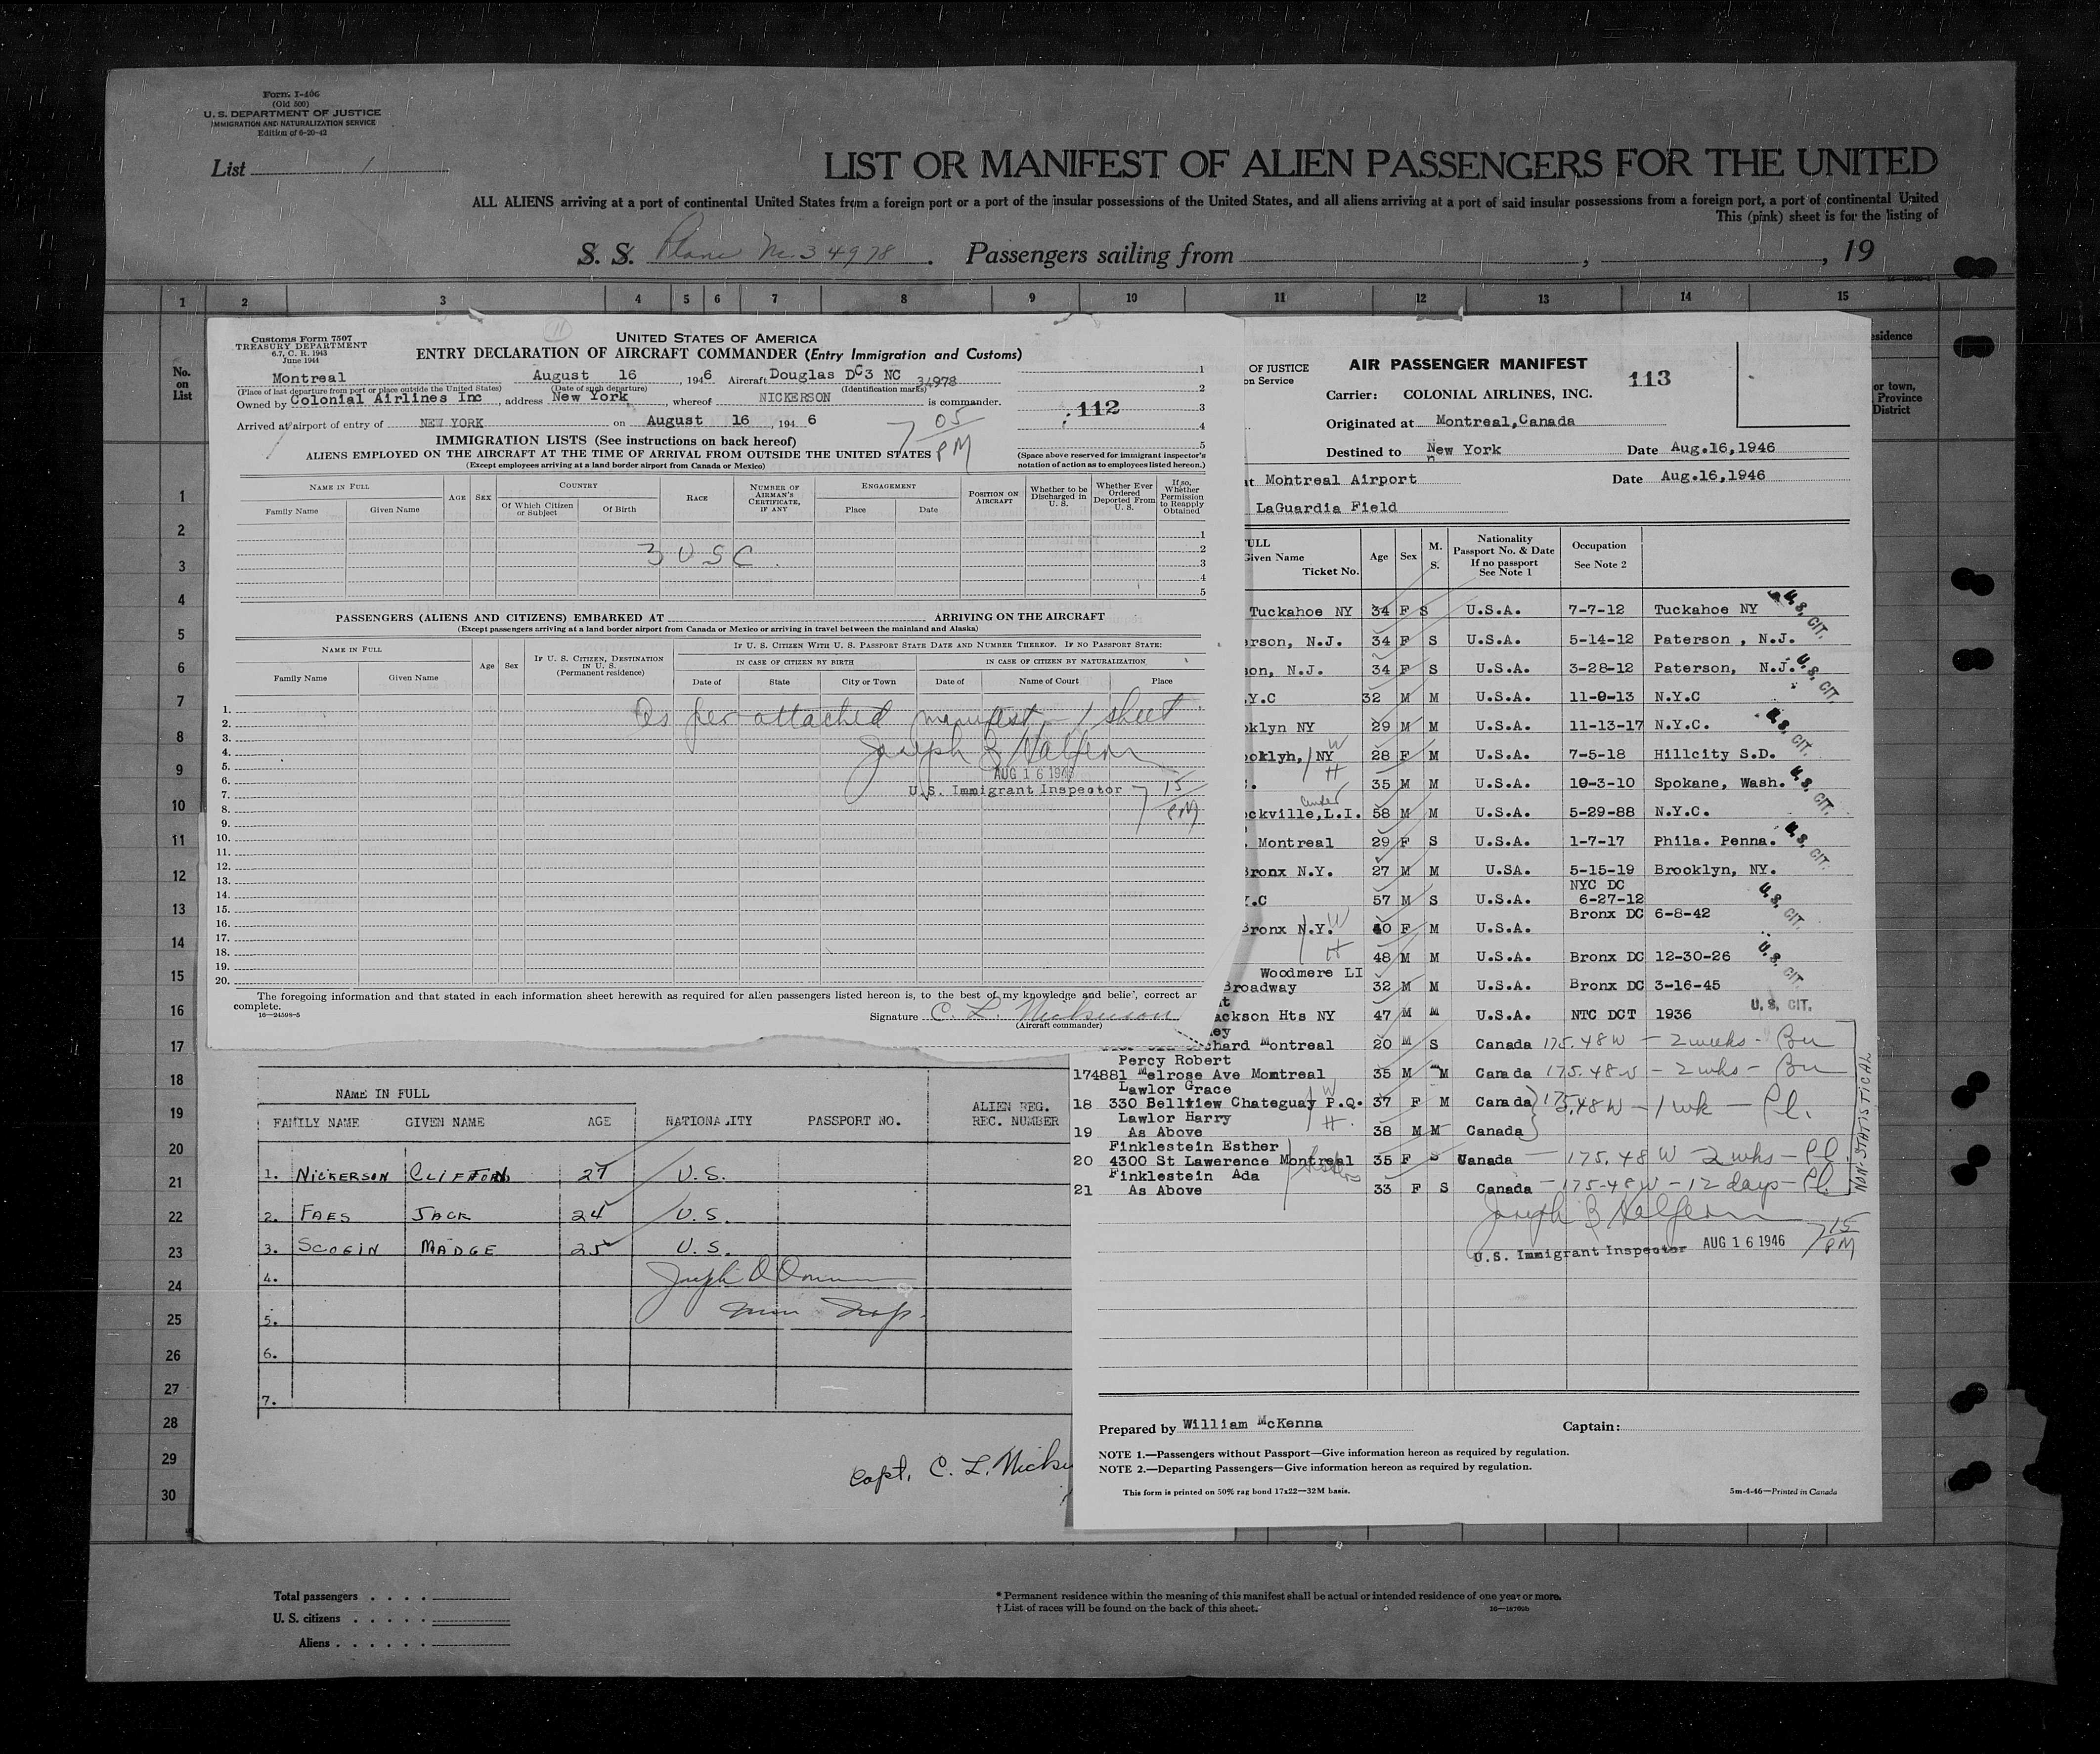 Form I-406
(Old 500)
U. S. DEPARTMENT OF JUSTICE
IMMIGRATION AND NATURALIZATION SERVICE
Edition of 6-20-42
List 1
LIST OR MANIFEST OF ALIEN PASSENGERS FOR THE UNITED
ALL ALIENS arriving at a port of continental United States from a foreign port or a port of the insular possessions of the United States, and all aliens arriving at a port of said insular possessions from a foreign port, a port of continental United
This (pink) sheet is for the listing of
S. S. Plane Nc. 34978 . Passengers sailing from , , 19
1 2 3 4 5 6 7 8 9 10 11 12 13 14 15
No. on List
sidence
or town,
Province
District
1
2
3
4
5
6
7
8
9
10
11
12
13
14
15
16
17
18
19
20
21
22
23
24
25
26
27
28
29
30
Customs Form 7507
TREASURY DEPARTMENT
6.7, C. R. 1943
June 1944
11
UNITED STATES OF AMERICA
ENTRY DECLARATION OF AIRCRAFT COMMANDER (Entry Immigration and Customs)
Montreal August 16 , 1946 Aircraft Douglas DC3 NC 34978
(Place of last departure from port or place outside the United States) (Date of such departure) (Identification marks)
Owned by Colonial Airlines Inc , address New York , whereof NICKERSON is commander.
Arrived at airport of entry of NEW YORK on August 16 , 194 6
7 05 PM
1
2
3
4
5
112
IMMIGRATION LISTS (See instructions on back hereof)
ALIENS EMPLOYED ON THE AIRCRAFT AT THE TIME OF ARRIVAL FROM OUTSIDE THE UNITED STATES
(Except employees arriving at a land border airport from Canada or Mexico)
(Space above reserved for immigrant inspector's notation of action as to employees listed hereon.)
NAME IN FULL AGE SEX COUNTRY RACE NUMBER OF AIRMAN'S CERTIFICATE, IF ANY ENGAGEMENT POSITION ON AIRCRAFT Whether to be Discharged in U. S. Whether Ever Ordered Deported From U. S. If so, Whether Permission to Reapply Obtained
Family Name Given Name Of Which Citizen or Subject Of Birth Place Date
1
2
3
4
5
3 USC.
PASSENGERS (ALIENS AND CITIZENS) EMBARKED AT ARRIVING ON THE AIRCRAFT
(Except passengers arriving at a land border airport from Canada or Mexico or arriving in travel between the mainland and Alaska)
NAME IN FULL Age Sex IF U. S. CITIZEN, DESTINATION IN U. S. (Permanent residence) IF U. S. CITIZEN WITH U. S. PASSPORT STATE DATE AND NUMBER THEREOF. IF NO PASSPORT STATE:
IN CASE OF CITIZEN BY BIRTH IN CASE OF CITIZEN BY NATURALIZATION
Family Name Given Name Date of State City or Town Date of Name of Court Place
1.
2.
3.
4.
5.
6.
7.
8.
9.
10.
11.
12.
13.
14.
15.
16.
17.
18.
19.
20.
As per attached manifest - 1 sheet
Joseph B Halfern
AUG 16 1946
U.S. Immigrant Inspector 7 15 PM
The foregoing information and that stated in each information sheet herewith as required for alien passengers listed hereon is, to the best of my knowledge and belief, correct ar
complete.
16—24598-5
Signature C. L. Nickerson
(Aircraft commander)
NAME IN FULL
FAMILY NAME GIVEN NAME AGE NATIONALITY PASSPORT NO. ALIEN REG. REC. NUMBER
1. NICKERSON CLIFTON 27 U.S.
2. FAES JACK 24 U.S.
3. SCOGIN MADGE 25 U.S.
4.
5.
6.
7.
Capt. C. L. Nicke
OF JUSTICE
on Service
AIR PASSENGER MANIFEST
113
Carrier: COLONIAL AIRLINES, INC.
Originated at Montreal,Canada
Destined to New York Date Aug.16,1946
at Montreal Airport Date Aug.16,1946
LaGuardia Field
ULL
Given Name
Ticket No. Age Sex M. S. Nationality Passport No. & Date If no passport See Note 1 Occupation See Note 2
Tuckahoe NY 34 F S U.S.A. 7-7-12 Tuckahoe NY U.S. CIT.
erson, N.J. 34 F S U.S.A. 5-14-12 Paterson , N.J.
son, N.J. 34 F S U.S.A. 3-28-12 Paterson, N.J. U.S. CIT.
.Y.C 32 M M U.S.A. 11-9-13 N.Y.C
oklyn NY 29 M M U.S.A. 11-13-17 N.Y.C. U.S. CIT.
ooklyh, NY W 28 F M U.S.A. 7-5-18 Hillcity S.D.
. H 35 M M U.S.A. 10-3-10 Spokane, Wash. U.S. CIT.
ockville,L.I. 58 M M U.S.A. 5-29-88 N.Y.C.
. Montreal 29 F S U.S.A. 1-7-17 Phila. Penna. U.S. CIT.
Bronx N.Y. 27 M M U.SA. 5-15-19 Brooklyn, NY.
Y.C 57 M S U.S.A. NYC DC 6-27-12 U.S. CIT.
Bronx N.Y. W 40 F M U.S.A. Bronx DC 6-8-42
H 48 M M U.S.A. Bronx DC 12-30-26 U.S. CIT.
Woodmere LI
Broadway 32 M M U.S.A. Bronx DC 3-16-45
ackson Hts NY 47 M M U.S.A. NTC DCT 1936 U.S. CIT.
ey
chard Montreal 20 M S Canada 175.48W - 2 weeks - Bu
Percy Robert
174881 Melrose Ave Montreal 35 M M Canada 175.48W - 2 wks - Bu
Lawlor Grace
18 330 Bellview Chateguay P.Q. W 37 F M Canada 175.48W - 1 wk - Pl.
Lawlor Harry
19 As Above H. 38 M M Canada
Finklestein Esther
20 4300 St Lawerence Montreal 35 F S Canada - 175.48 W - 2 wks - Pl.
Finklestein Ada
21 As Above 33 F S Canada - 175-48W - 12 days - Pl.
NON-STATISTICAL
Joseph B Halfern
U.S. Immigrant Inspector AUG 16 1946 7 15 PM
Prepared by William McKenna Captain:
NOTE 1.—Passengers without Passport—Give information hereon as required by regulation.
NOTE 2.—Departing Passengers—Give information hereon as required by regulation.
This form is printed on 50% rag bond 17x22—32M basis. 5m-4-46—Printed in Canada
Total passengers . . . .
U. S. citizens . . . . .
Aliens . . . . . .
* Permanent residence within the meaning of this manifest shall be actual or intended residence of one year or more.
† List of races will be found on the back of this sheet.